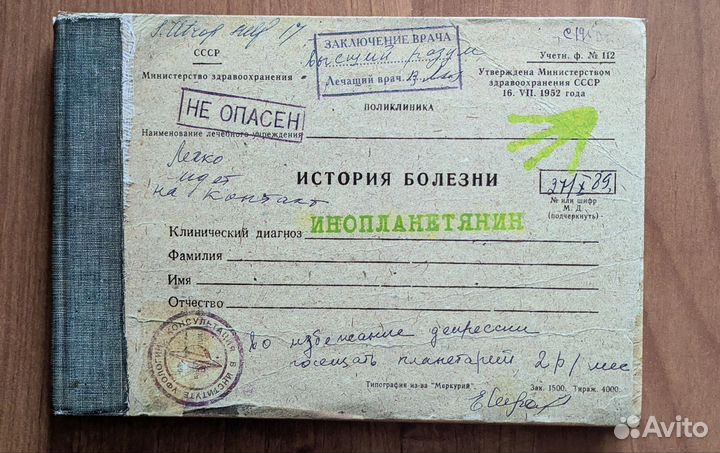 СССР
Министерство здравоохранения
ЗАКЛЮЧЕНИЕ ВРАЧА
Высший разум
Лечащий врач
Учетн. ф. № 112
Утверждена Министерством
здравоохранения СССР
16. VII. 1952 года
ПОЛИКЛИНИКА
НЕ ОПАСЕН
Наименование лечебного учреждения
Легко
идет
на контакт
ИСТОРИЯ БОЛЕЗНИ
27/X 89
№ или шифр
М. Д.
(подчеркнуть)
Клинический диагноз ИНОПЛАНЕТЯНИН
Фамилия
Имя
Отчество
КОНСУЛЬТАЦИЯ В ИНСТИТУТЕ
Во избежание депрессии
посещать планетарий 2р/мес
Типография из-ва "Меркурий"
Зак. 1500. Тираж. 4000.
Avito